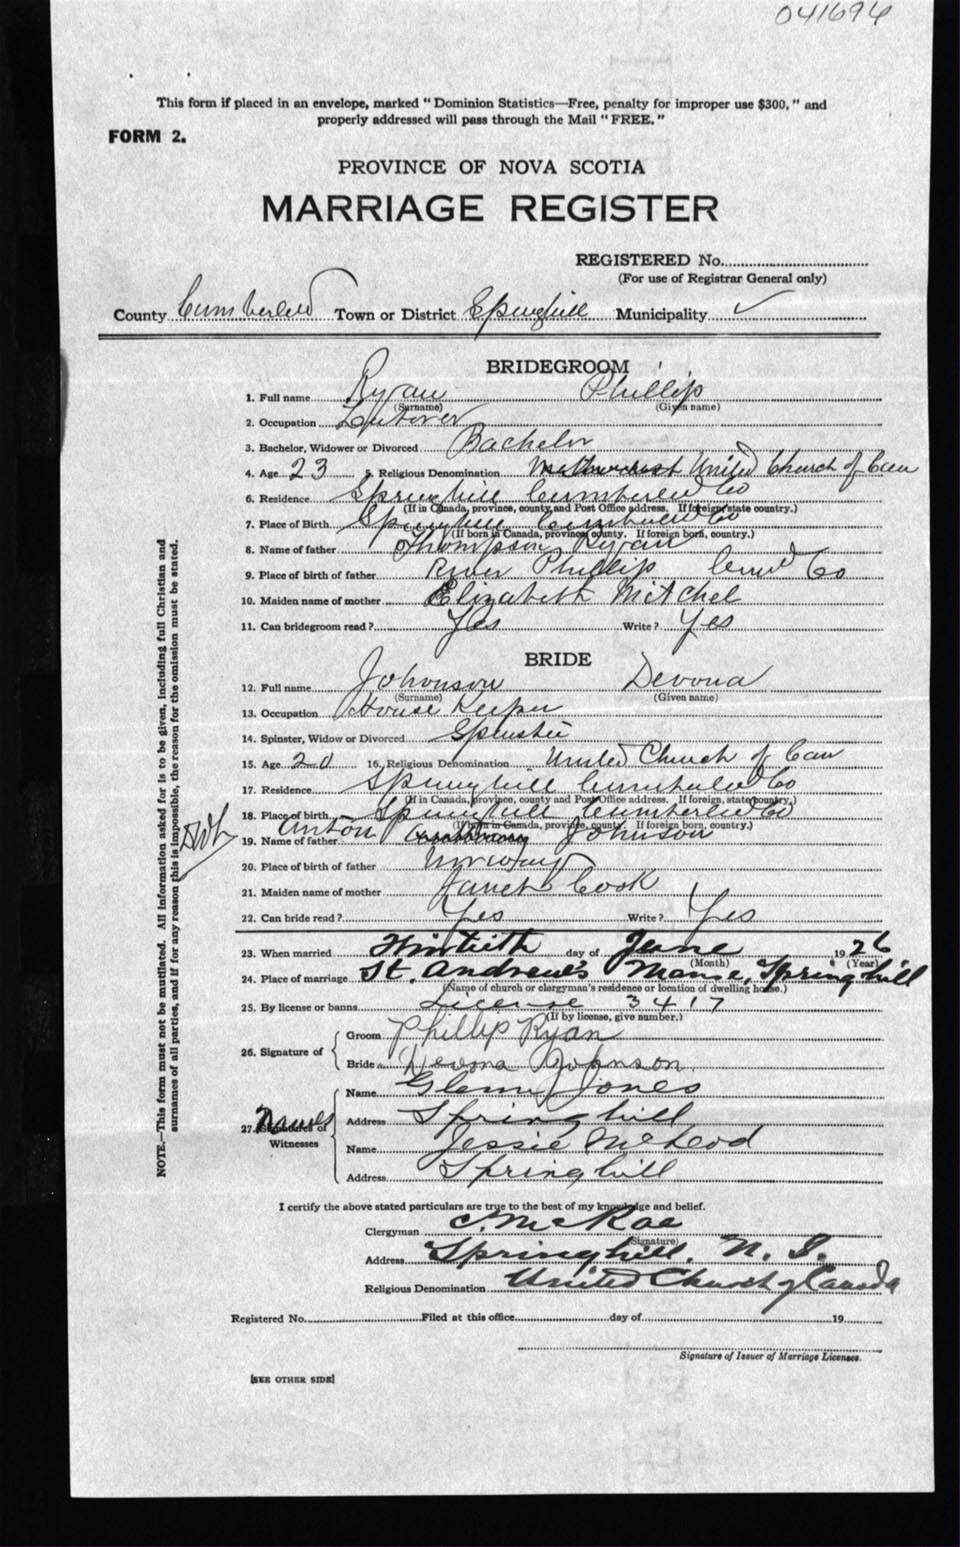 041694
This form if placed in an envelope, marked "Dominion Statistics—Free, penalty for improper use $300," and
properly addressed will pass through the Mail "FREE."
FORM 2.
PROVINCE OF NOVA SCOTIA
MARRIAGE REGISTER
REGISTERED No.
(For use of Registrar General only)
County Cumberland Town or District Springhill Municipality ✓
BRIDEGROOM
1. Full name Ryan Phillip
(Surname) (Given name)
2. Occupation
3. Bachelor, Widower or Divorced Bachelor
4. Age 23 5. Religious Denomination United Church of Can
6. Residence Springhill Cumberland Co
(If in Canada, province, county and Post Office address. If foreign, state country.)
7. Place of Birth Springhill Cumberland Co
(If born in Canada, province, county. If foreign born, country.)
8. Name of father Thompson Ryan
9. Place of birth of father River Phillip Cumd Co
10. Maiden name of mother Elizabeth Mitchel
11. Can bridegroom read? Yes Write? Yes
BRIDE
12. Full name Johnson Devona
(Surname) (Given name)
13. Occupation House Keeper
14. Spinster, Widow or Divorced Spinster
15. Age 20 16. Religious Denomination United Church of Can
17. Residence Springhill Cumberland Co
(If in Canada, province, county and Post Office address. If foreign, state country.)
18. Place of birth Springhill Cumberland Co
(If born in Canada, province, county. If foreign born, country.)
19. Name of father Anton Johnson
20. Place of birth of father Norway
21. Maiden name of mother Janet Cook
22. Can bride read? Yes Write? Yes
23. When married day of June 1926
(Month) (Year)
24. Place of marriage St. Andrew's Manse, Springhill
(Name of church or clergyman's residence or location of dwelling house.)
25. By license or banns License 3417
(If by license, give number.)
26. Signature of
Groom Phillip Ryan
Bride Devona Johnson
27. Names Signatures of Witnesses
Name Glenn Jones
Address Springhill
Name Jessie McLeod
Address Springhill
I certify the above stated particulars are true to the best of my knowledge and belief.
Clergyman C. McRae
(Signature)
Address Springhill, N. S.
Religious Denomination United Church of Canada
Registered No. Filed at this office day of 19
Signature of Issuer of Marriage Licenses.
[SEE OTHER SIDE]
NOTE.—This form must not be mutilated. All information asked for is to be given, including full Christian and
surnames of all parties, and if for any reason this is impossible, the reason for the omission must be stated.